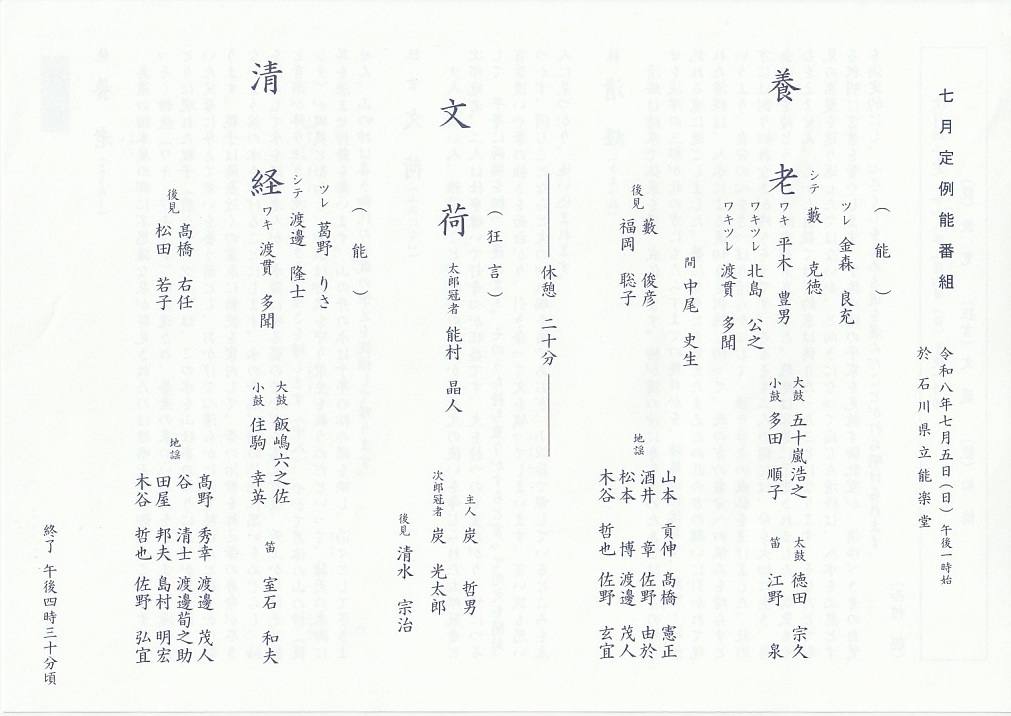 七月定例能番組
令和八年七月五日（日）午後一時始
於 石川県立能楽堂
（能）
養老
ツレ 金森 良充
シテ 藪 克徳
ワキ 平木 豊男
ワキツレ 北島 公之
ワキツレ 渡貫 多聞
間 中尾 史生
大鼓 五十嵐浩之
小鼓 多田 順子
太鼓 徳田 宗久
笛 江野 泉
後見
藪 俊彦
福岡 聡子
地謡
山本 貢伸 髙橋 憲正
酒井 章 佐野 由於
松本 博 渡邊 茂人
木谷 哲也 佐野 玄宜
休憩 二十分
（狂言）
文荷
太郎冠者 能村 晶人
主人 炭 哲男
次郎冠者 炭 光太郎
後見 清水 宗治
（能）
清経
ツレ 葛野 りさ
シテ 渡邊 隆士
ワキ 渡貫 多聞
大鼓 飯嶋六之佐
小鼓 住駒 幸英
笛 室石 和夫
後見
髙橋 右任
松田 若子
地謡
髙野 秀幸 渡邊 茂人
谷 清士 渡邊荀之助
田屋 邦夫 島村 明宏
木谷 哲也 佐野 弘宜
終了 午後四時三十分頃